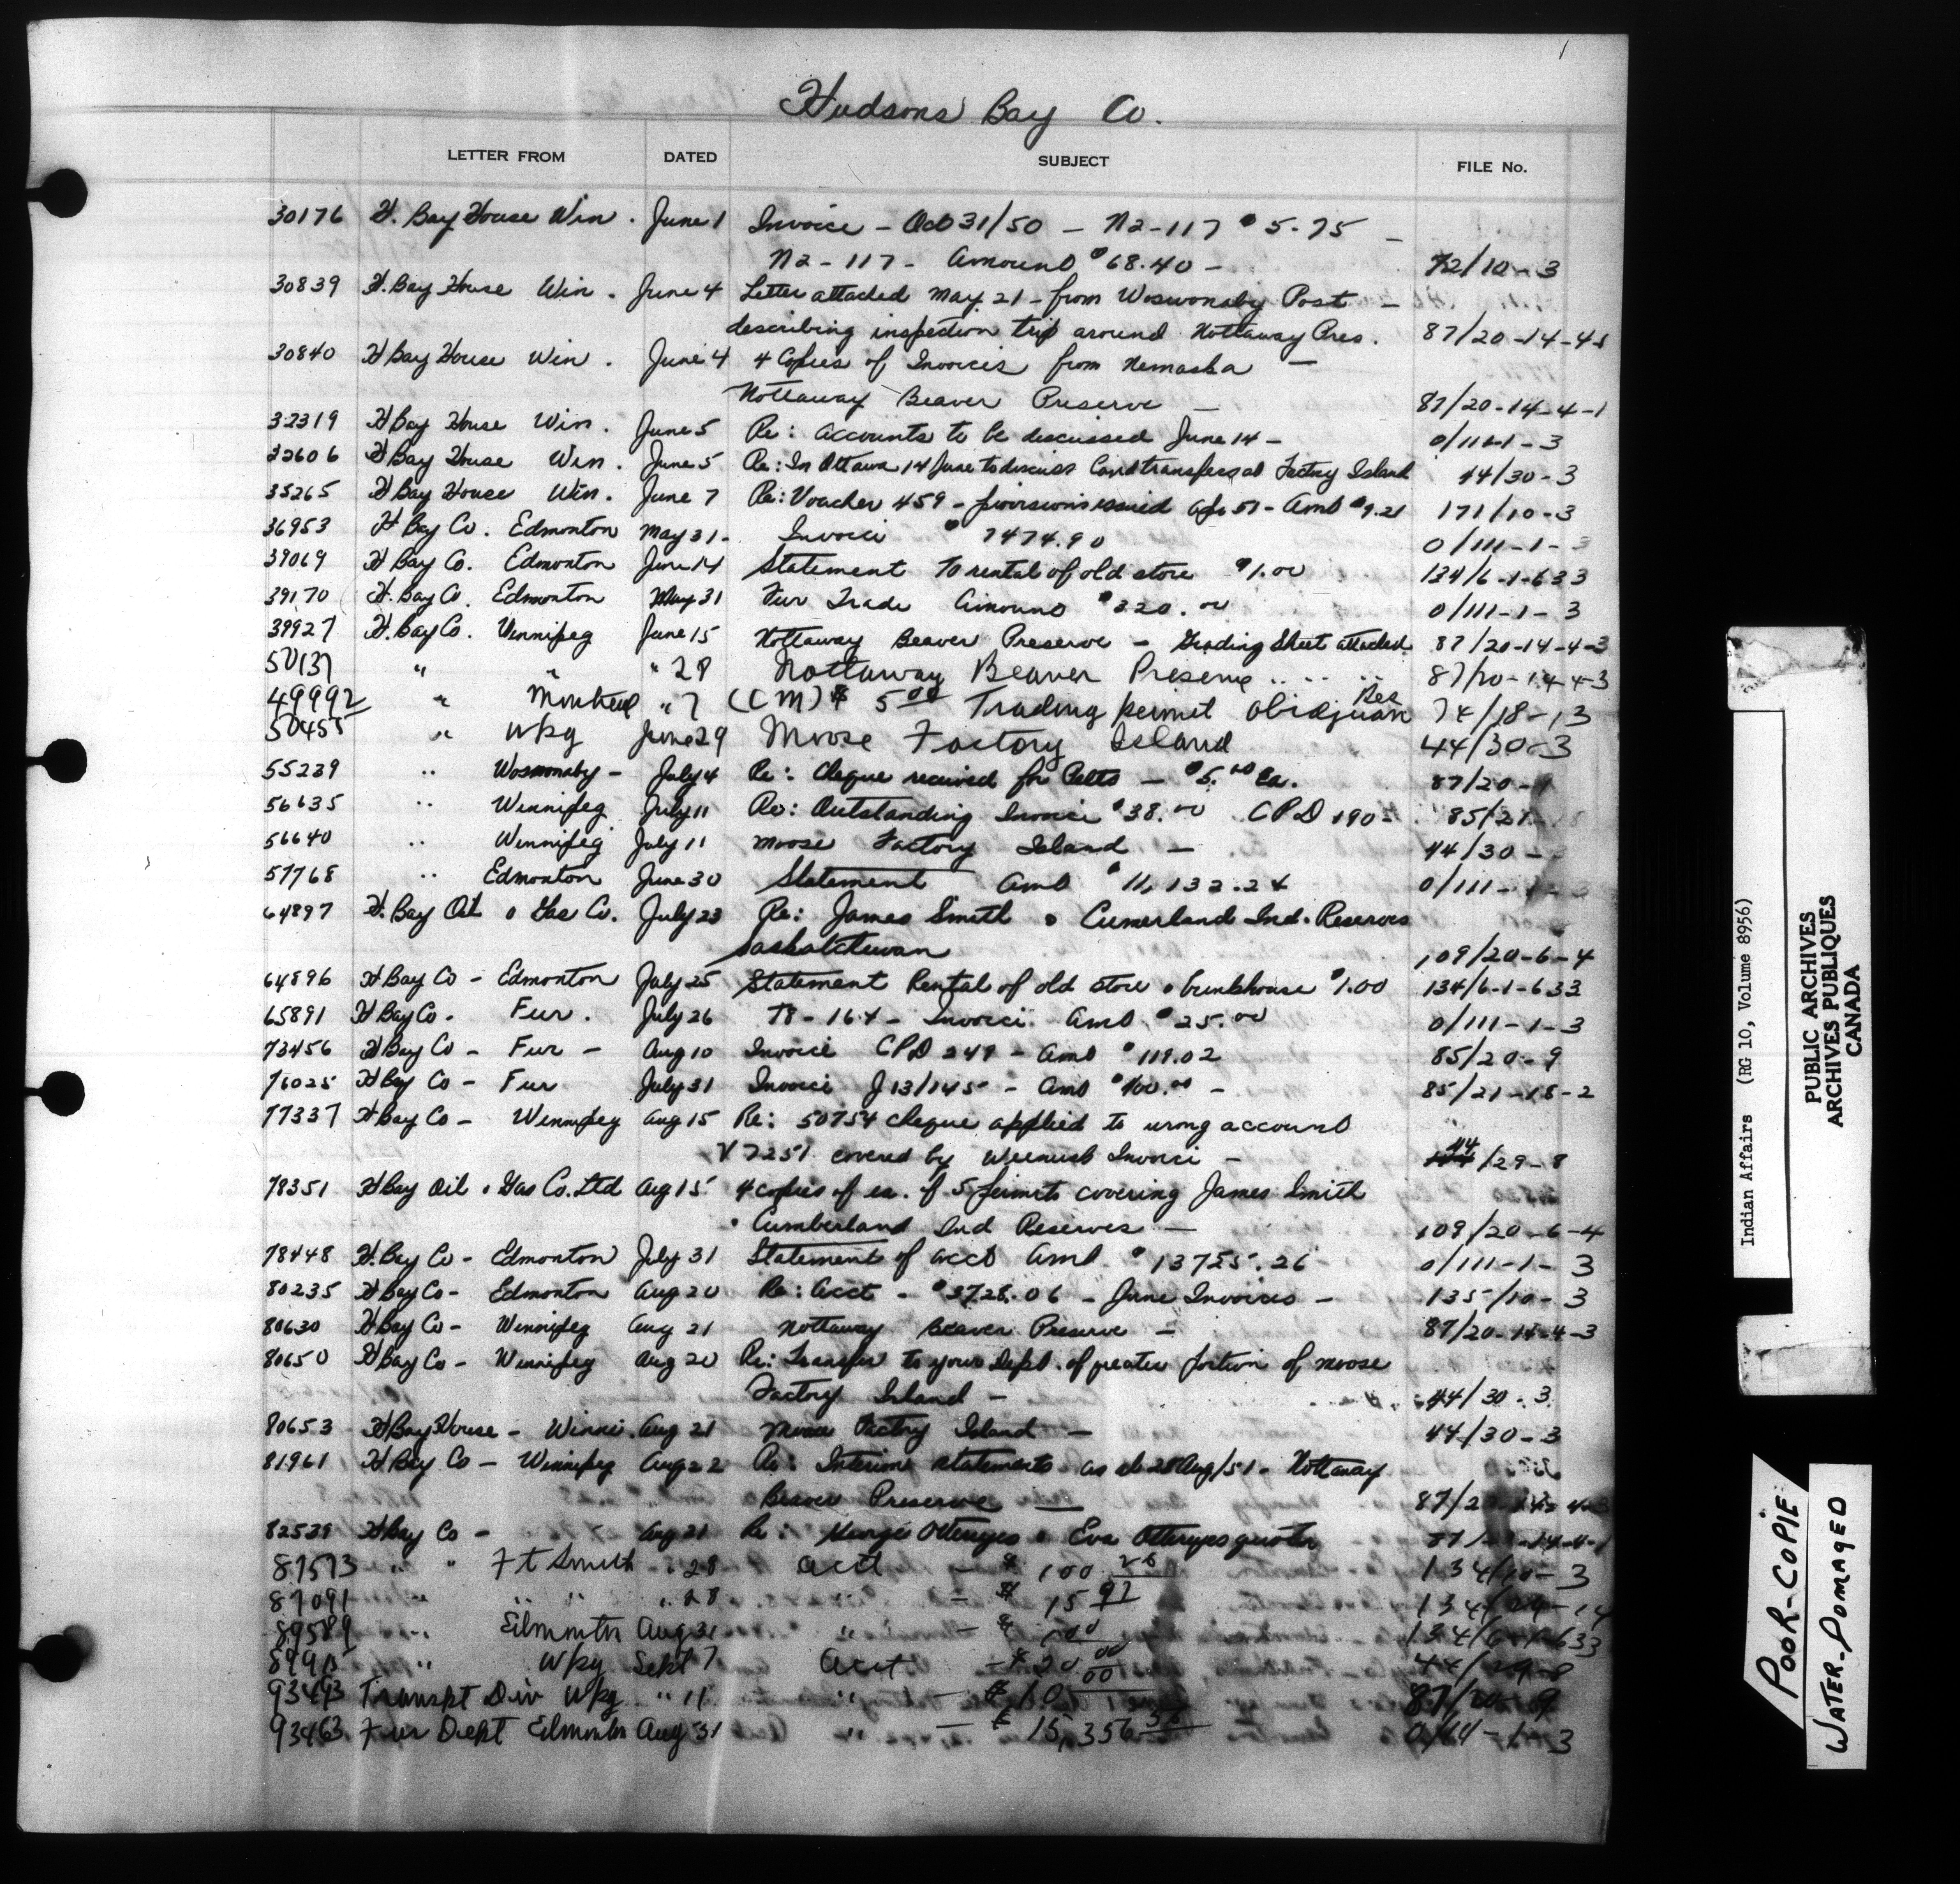 1
Hudsons Bay Co.
LETTER FROM DATED SUBJECT FILE No.
30176 H. Bay House Win. June 1 Invoice - Oct 31/50 - N2-117 $5.75 -
N2-117 - Amount $68.40 - 72/10-3
30839 H. Bay House Win. June 4 Letter attached May 21 - from Woswonaby Post -
describing inspection trip around Nottaway Pres. 87/20-14-4-1
30840 H Bay House Win. June 4 4 Copies of Invoices from Nemaska -
Nottaway Beaver Preserve - 87/20-14-4-1
32319 H Bay House Win. June 5 Re: Accounts to be discussed June 14 - 0/111-1-3
32606 H Bay House Win. June 5 Re: In Ottawa 14 June to discuss Land transfers at Factory Island 44/30-3
35265 H Bay House Win. June 7 Re: Voucher 459 - provisions issued Apr 51 - Amt $9.21 171/10-3
36953 H Bay Co. Edmonton May 31 - Invoice $7474.90 0/111-1-3
39069 H Bay Co. Edmonton June 14 Statement to rental of old store $1.00 134/6-1-633
39170 H. Bay Co. Edmonton May 31 Fur Trade Amount $320.00 0/111-1-3
39927 H. Bay Co. Winnipeg June 15 Nottaway Beaver Preserve - Grading Sheet attached 87/20-14-4-3
50137 " " " 28 Nottaway Beaver Preserve 87/20-14-4-3
49992 " Montreal " 7 (CM) $ 5.00 Trading permit Obidjuan Res 74/18-13
50455 " Wpg June 29 Moose Factory Island 44/30-3
55239 " Woswonaby - July 4 Re: Cheque received for Pelts - $5.00 Ea. 87/20-9
56635 " Winnipeg July 11 Re: Outstanding Invoice $38.00 CPD 190 - 85/21-
56640 " Winnipeg July 11 Moose Factory Island - 44/30-
57768 " Edmonton June 30 Statement Amt $11,132.24 0/111-
64897 H. Bay Oil & Gas Co. July 23 Re: James Smith & Cumerland Ind. Reserves
Saskatchewan 109/20-6-4
64896 H Bay Co - Edmonton July 25 Statement Rental of old store & bunkhouse $1.00 134/6-1-633
65891 H Bay Co - Fur. July 26 T8-164 - Invoice Amt $25.00 0/111-1-3
73456 H Bay Co - Fur - Aug 10 Invoice CPD 249 - Amt $119.02 85/20-9
76025 H Bay Co - Fur July 31 Invoice J13/145 - Amt $100.00 - 85/21-18-2
77337 H Bay Co - Winnipeg Aug 15 Re: 50754 cheque applied to wrong account
V7251 covered by Weenusk Invoice - 44/29-8
78351 H Bay Oil & Gas Co. Ltd Aug 15 4 copies of ea. of 5 permits covering James Smith
& Cumberland Ind Reserves - 109/20-6-4
78448 H. Bay Co - Edmonton July 31 Statement of acct Amt $13725.26 0/111-1-3
80235 H Bay Co - Edmonton Aug 20 Re: Acct - $3728.06 - June Invoices - 135/10-3
80630 H Bay Co - Winnipeg Aug 21 Nottaway Beaver Preserve - 87/20-14-4-3
80650 H Bay Co - Winnipeg Aug 20 Re: Transfer to your Dept. of greater portion of Moose
Factory Island - 44/30-3
80653 H Bay House - Winni. Aug 21 Moose Factory Island - 44/30-3
81961 H Bay Co - Winnipeg Aug 22 Re: Interim statements as at 28 Aug/51 - Nottaway
Beaver Preserve - 87/20-14-4-3
82539 H Bay Co - Aug 21 Re: Otereyes & Eva Otereyes quota
87573 " " Ft Smith " 28 acct - $ 100 134/10-3
87091 " " " 28 - $ 15 97 134/29-14
89589 " Edmonton Aug 31 " - $ 1 00 134/6-1-633
" Wpg Sept 7 Acct - $ 20 00 44/29-8
93493 Transpt Div Wpg " 11 " - $ 10 00 87/20-9
93463 Fur Dept Edmonton Aug 31 " - $ 15,356 56 0/111-1-3
Indian Affairs (RG 10, Volume 8956)
PUBLIC ARCHIVES
ARCHIVES PUBLIQUES
CANADA
POOR-COPIE
WATER-DOMAGED